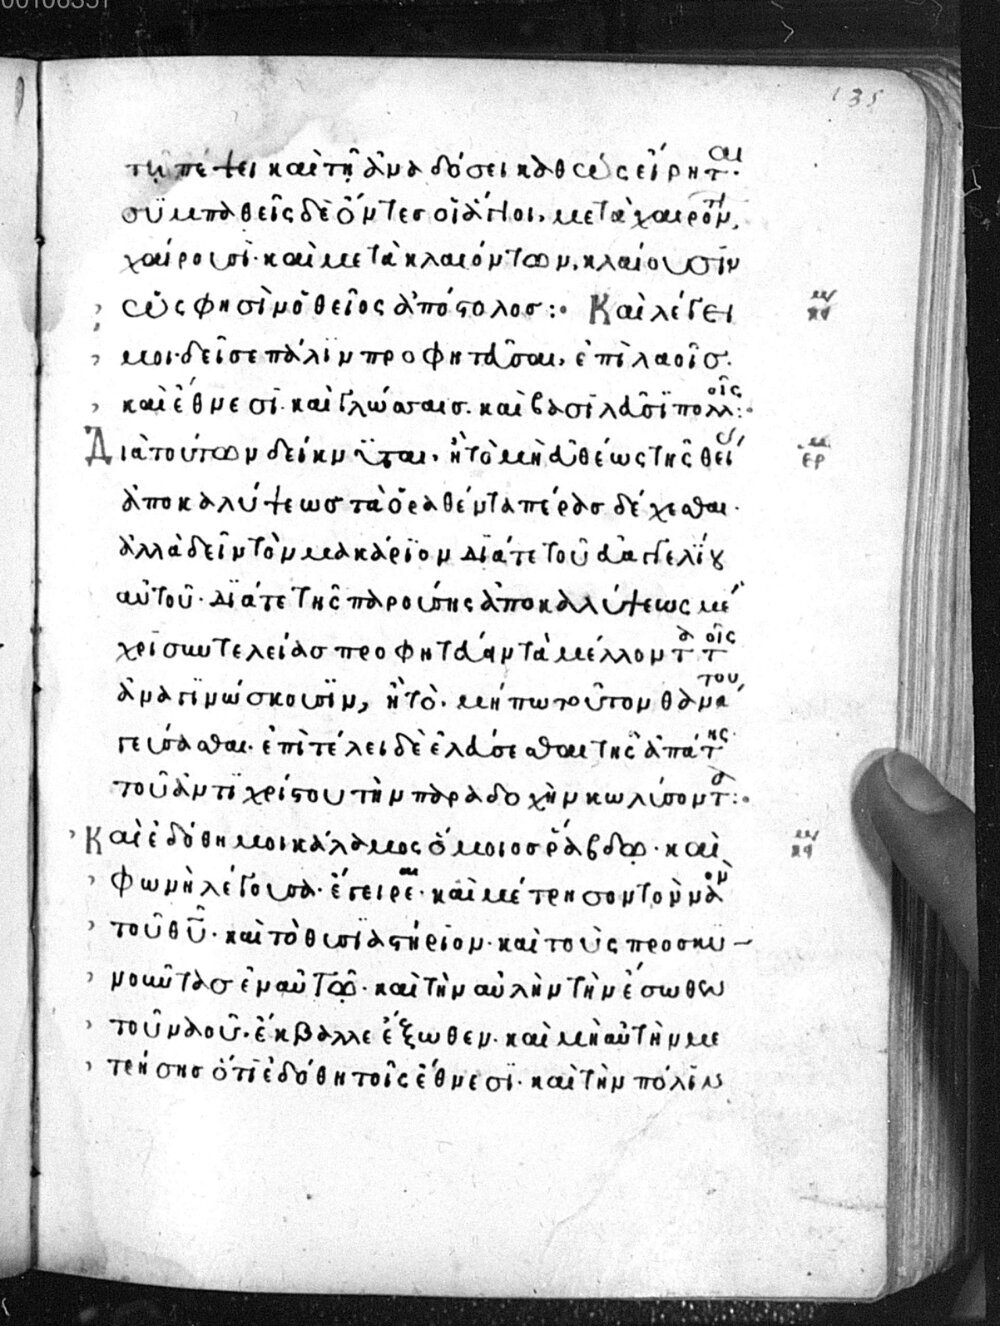 135
τῇ πέψει καὶ τῇ ἀναδόσει καθὼς εἴρηται·
συμπαθεῖς δὲ ὄντες οἱ ἅγιοι, μετὰ χαιρόντων,
χαίρουσι· καὶ μετὰ κλαιόντων, κλαίουσιν
ὥς φησὶν ὁ θεῖος ἀπόστολος :· Καὶ λέγει
μοι· δεῖ σε πάλιν προφητεῦσαι, ἐπὶ λαοῖς.
καὶ ἔθνεσι· καὶ γλώσσαις· καὶ βασιλεῦσι πολλοῖς :·
Διὰ τούτων δείκνυται, ἢ τὸ μὴ εὐθέως τῆς θεί
ἀποκαλύψεως τὰ ὁραθέντα πέρας δέχεσθαι·
ἀλλὰ δεῖν τὸν μακάριον διά τε τοῦ εὐαγγελίου
αὐτοῦ· διά τε τῆς παρούσης ἀποκαλύψεως μέ
χρι συντελείας προφητεύειν τὰ μέλλοντα τοῖς
ἀναγινώσκουσιν, ἢ τὸ· μήπω τοῦτον θανάτου
γεύσασθαι· ἐπὶ τέλει δὲ ἐλεύσεσθαι τῆς ἀπάτης
τοῦ ἀντιχρίστου τὴν παραδοχὴν κωλύσοντα :·
Καὶ ἐδόθη μοι κάλαμος ὅμοιος ῥάβδῳ· καὶ
φωνὴ λέγουσα· ἔγειραι· καὶ μέτρησον τὸν ναὸν
τοῦ θῦ· καὶ τὸ θυσιαστήριον· καὶ τοὺς προσκυ
νοῦντας ἐν αὐτῷ· καὶ τὴν αὐλὴν τὴν ἔσωθεν
τοῦ ναοῦ· ἔκβαλλε ἔξωθεν· καὶ μὴ αὐτὴν με
τρήσης ὅτι ἐδόθη τοῖς ἔθνεσι· καὶ τὴν πόλιν